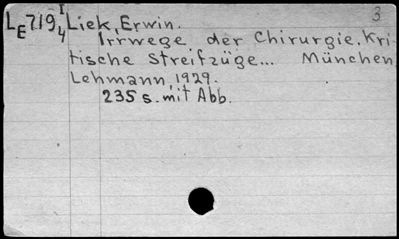 LE719 I/4 Liek, Erwin. 3
Irrwege der Chirurgie. Kri-
tische Streifzüge... München
Lehmann, 1929.
235 s. mit Abb.